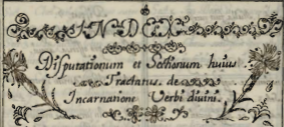 INDEX
Disputationum et Sectionum huius
Tractatus de
Incarnatione Verbi divini.